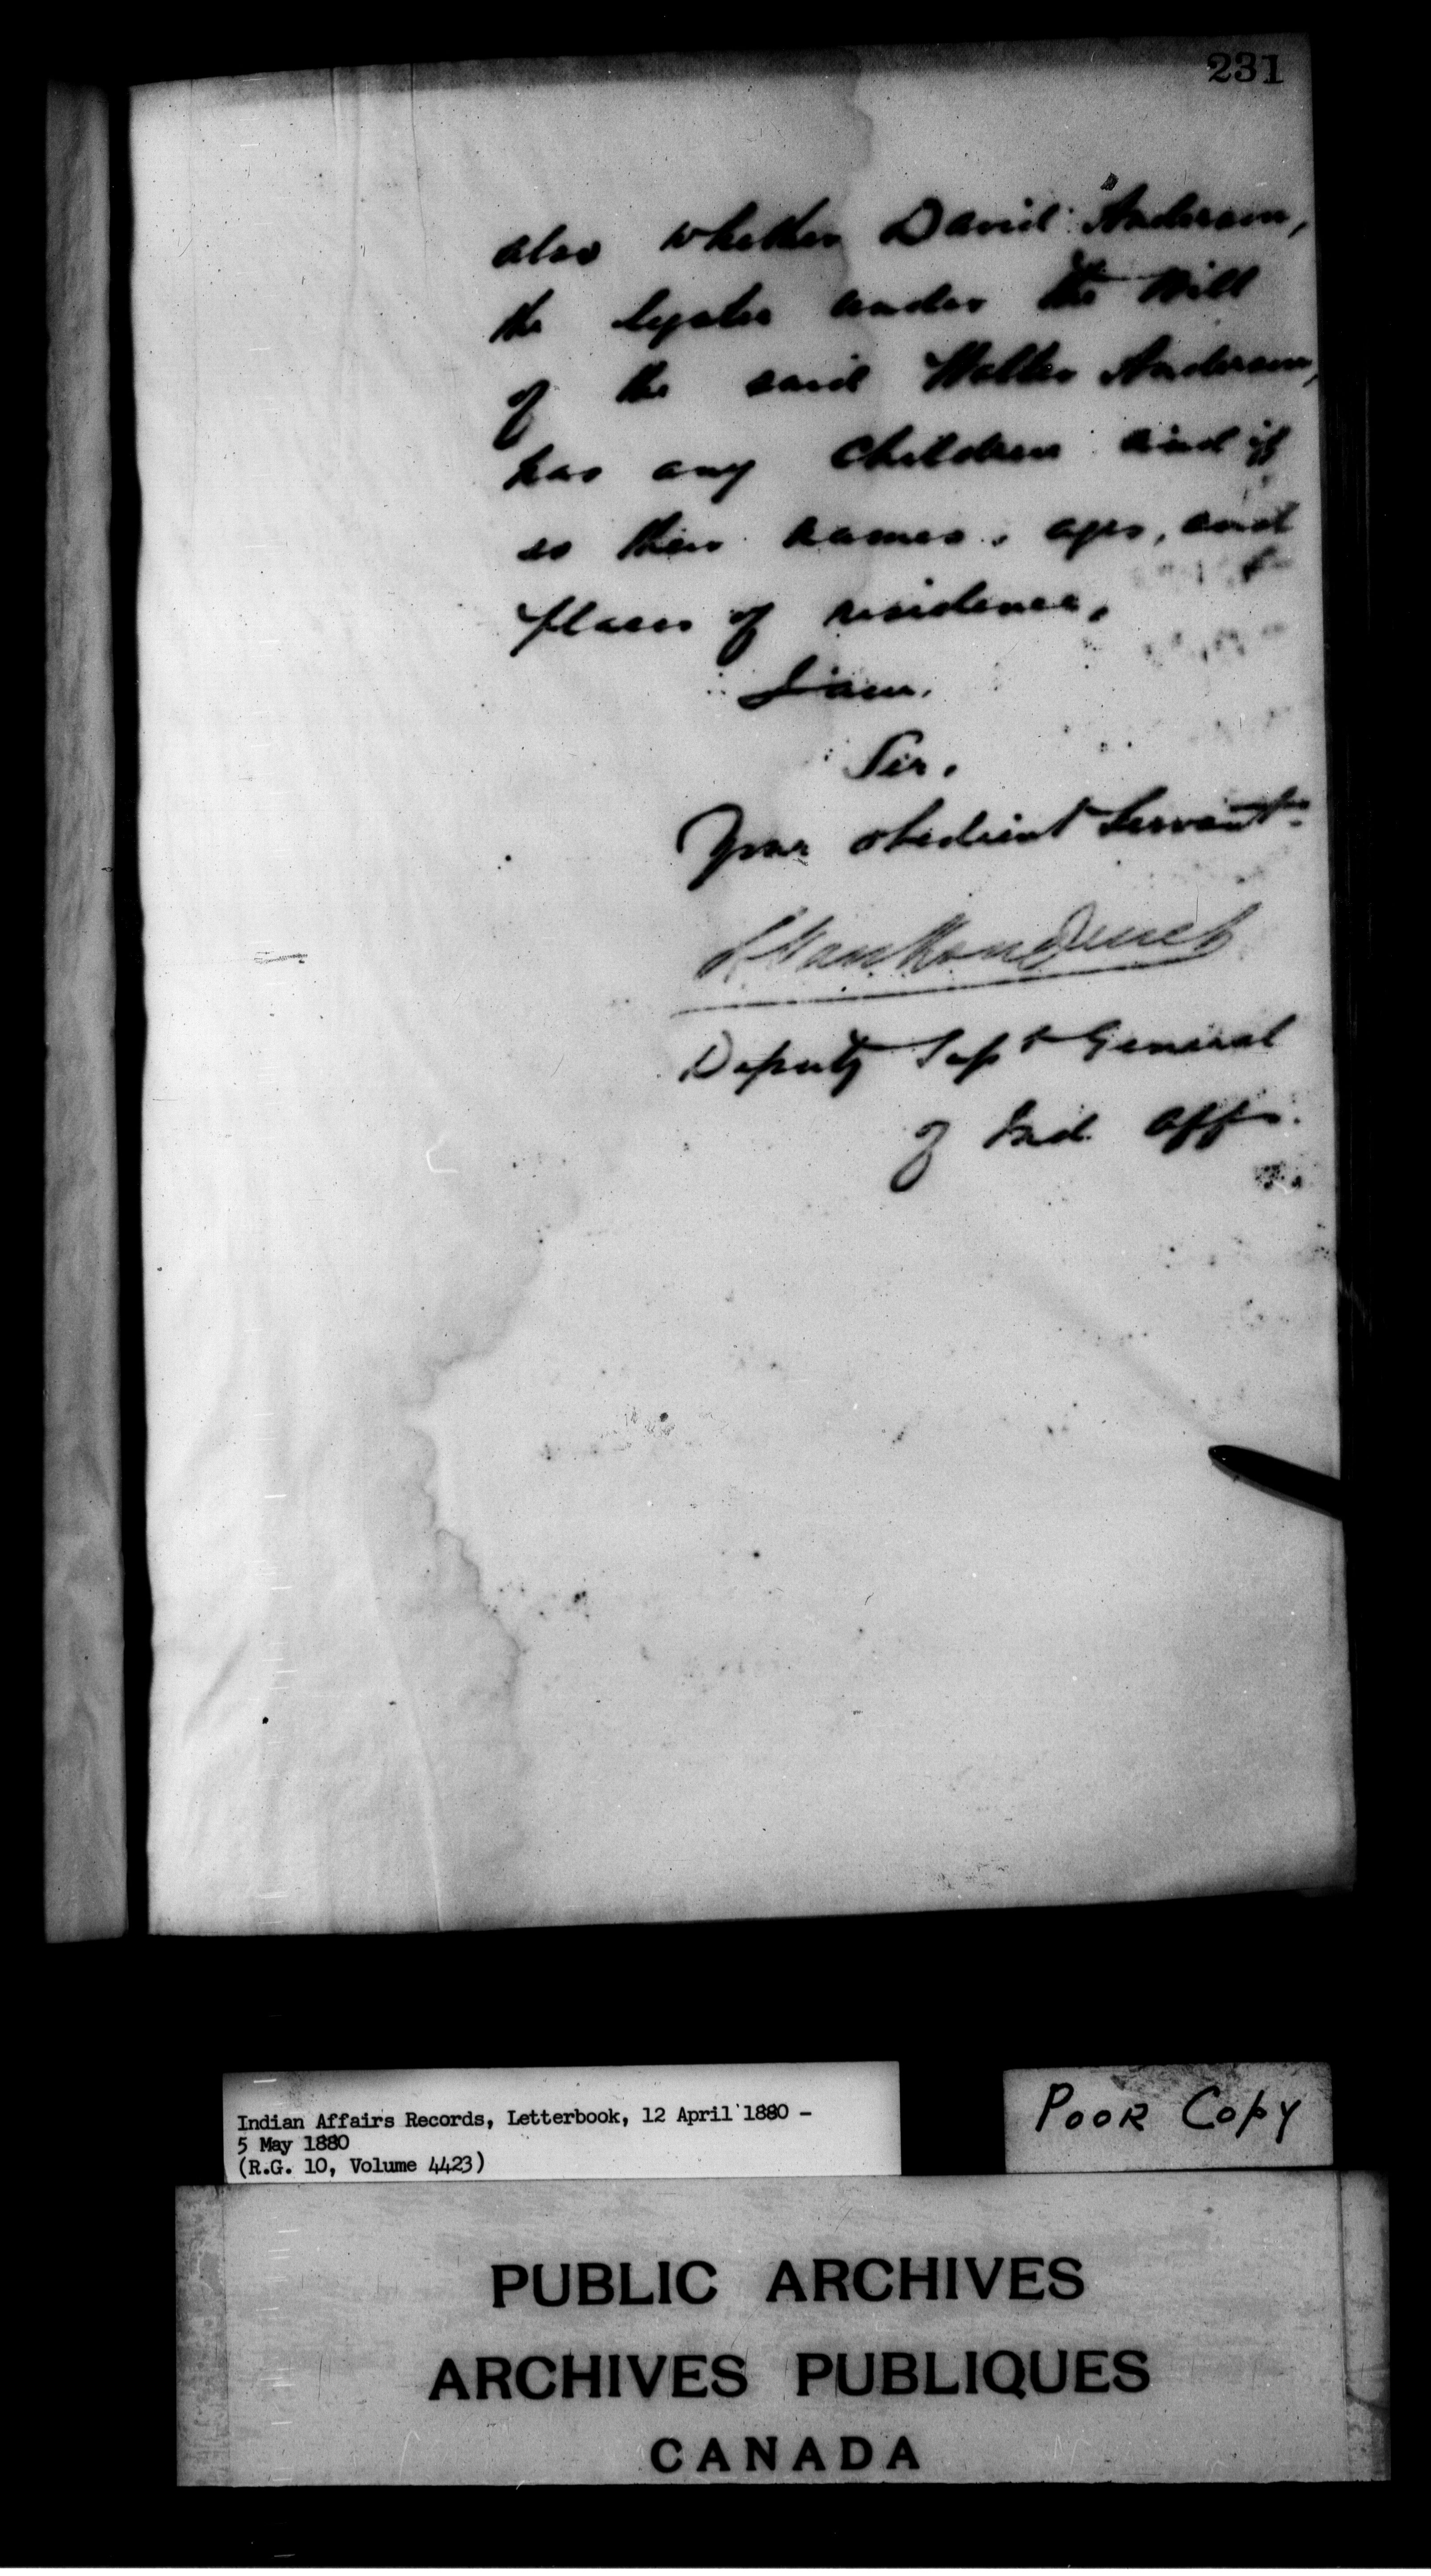 231
also whether David Anderson,
the legatee under the Will
of the said Walter Anderson,
has any children and if
so their names, ages, and
places of residence,
I am,
Sir,
Your obedient Servant
L Vankoughnet
Deputy Supt General
of Ind Affs.
Indian Affairs Records, Letterbook, 12 April 1880 -
5 May 1880
(R.G. 10, Volume 4423)
POOR COPY
PUBLIC ARCHIVES
ARCHIVES PUBLIQUES
CANADA